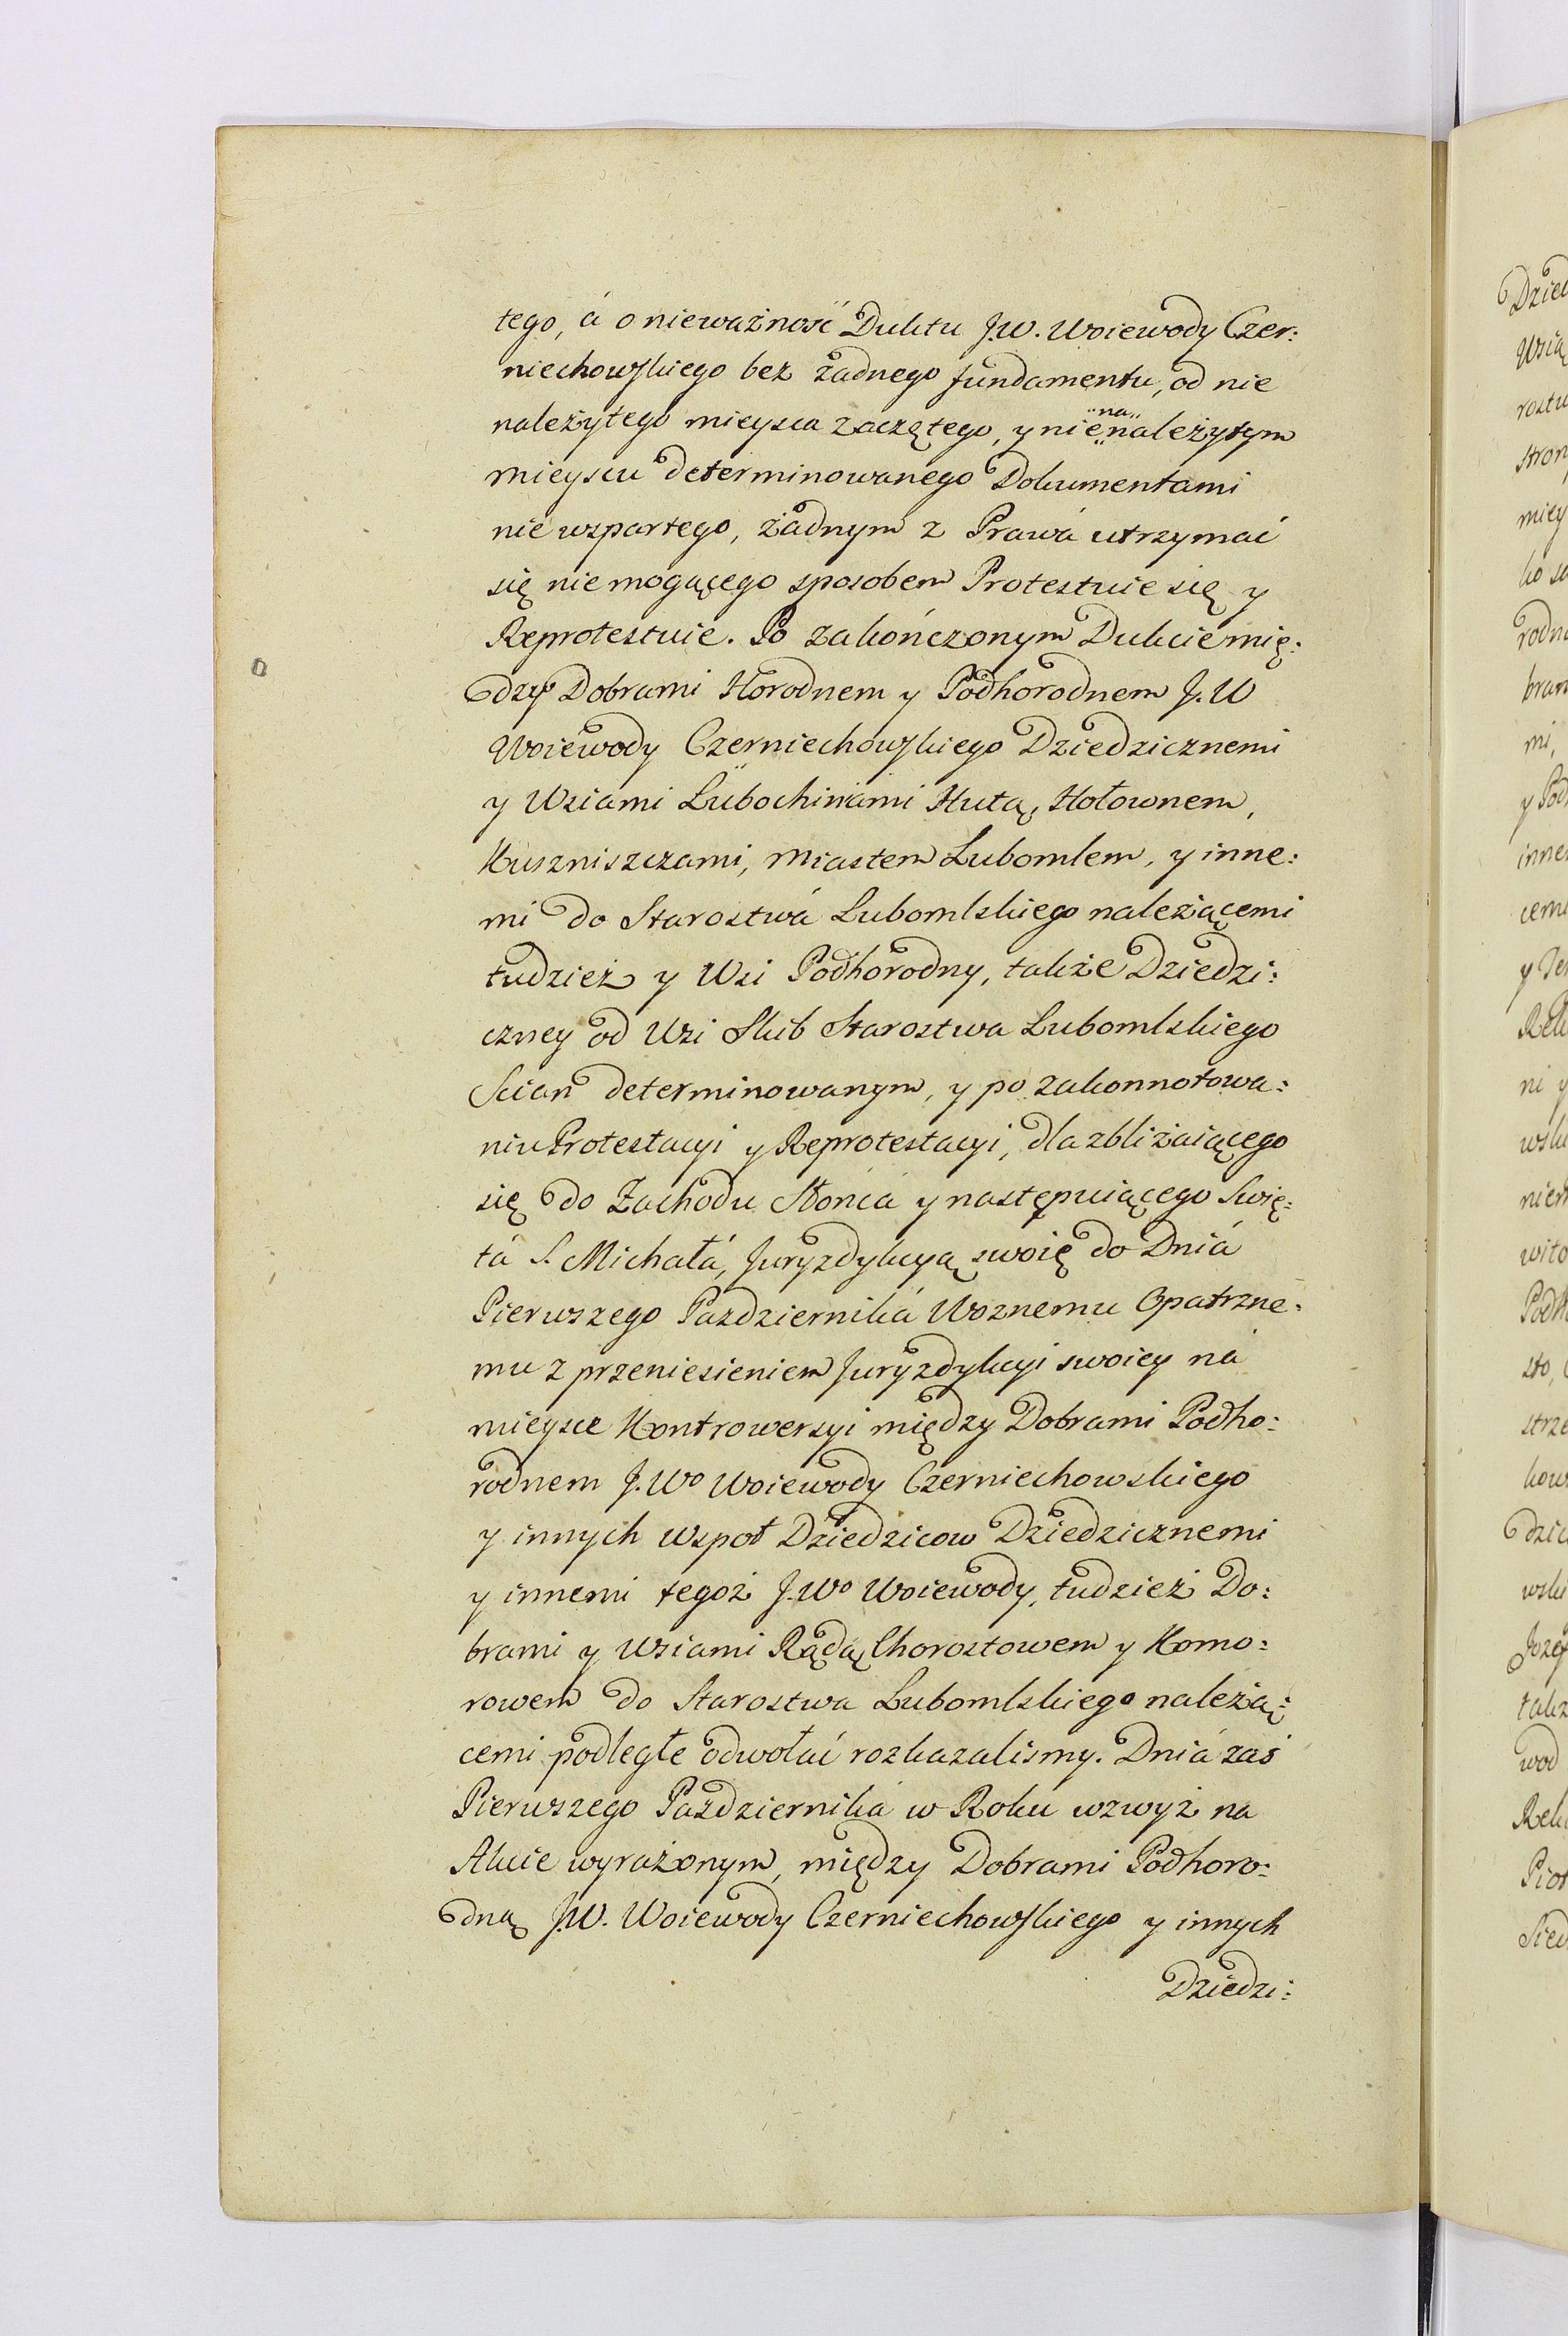 tego, á o nieważność Duktu J.W. Woiewody Czer:
niechowskiego bez żadnego fundamentu, od nie
należytego mieysca zaczętego, y nie na należytym
mieyscu determinowanego Dokumentami
nie wspartego, żadnym z Prawá utrzymać
się nie mogącego sposobem Protestuie się y
Reprotestuie. Po zakończonym Dukcie mię:
dzy Dobrami Horodnem y Podhorodnem J.W
Woiewody Czerniechowskiego Dziedzicznemi
y Wsiami Lubochiniami Hutą, Hołownem,
Kuszniszczami, Miastem Lubomlem, y inne:
mi do Starostwá Lubomlskiego należącemi
tudzież y Wsi Podhorodny, także Dziedzi:
czney od Wsi Slub Starostwa Lubomlskiego
Scian determinowanym, y po zakonnotowa:
niu Protestacyi y Reprotestacyi, dla zbliżaiącego
się do Zachodu Słońca y następuiącego Swię:
tá S. Michałá, Juryzdykcyą swoię do Dniá
Pierwszego Pazdziernika Woznemu Opatrzne:
mu z przeniesieniem Juryzdykcyi swoiey ná
mieysce Kontrowersyi między Dobrami Podho:
rodnem J. Wo Woiewody Czerniechowskiego
y innych Wspoł Dziedzicow Dziedzicznemi
y innemi tegoż J. Wo Woiewody, tudzież Do:
brami y Wsiami Rądą Chorostowem y Komo:
rowem do Starostwa Lubomlskiego należą:
cemi podległe odwołać rozkazalismy. Dniá zaś
Pierwszego Października w Roku wzwyż na
Akcie wyrażonym, między Dobrami Podhoro:
dną J.W. Woiewody Czerniechowskiego y innych
Dziedzi:
Dzied
Wsią
rostw
stron
miey
ko
rodn
bram
mi,
y Pod
inne
cemi
y
Rek
ni y
wsk
niem
wito
Podh
sto,
strze
kow
dzic
wski
Joze
takż
wod
Rek
Piot
Sied